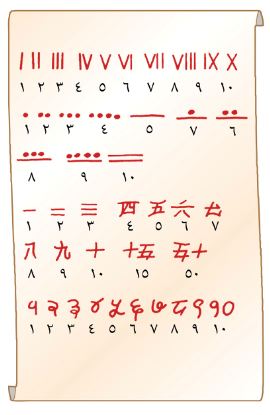 I II III IV V VI VII VIII IX X
١ ٢ ٣ ٤ ٥ ٦ ٧ ٨ ٩ ١٠
١ ٢ ٣ ٤ ٥ ٧ ٦
٨ ٩ ١٠
一 二 三 四 五 六 七
١ ٢ ٣ ٤ ٥ ٦ ٧
八 九 十 十五 五十
٨ ٩ ١٠ ١٥ ٥٠
१ २ ३ ४ ५ ६ ७ ८ ९ १०
١ ٢ ٣ ٤ ٥ ٦ ٧ ٨ ٩ ١٠